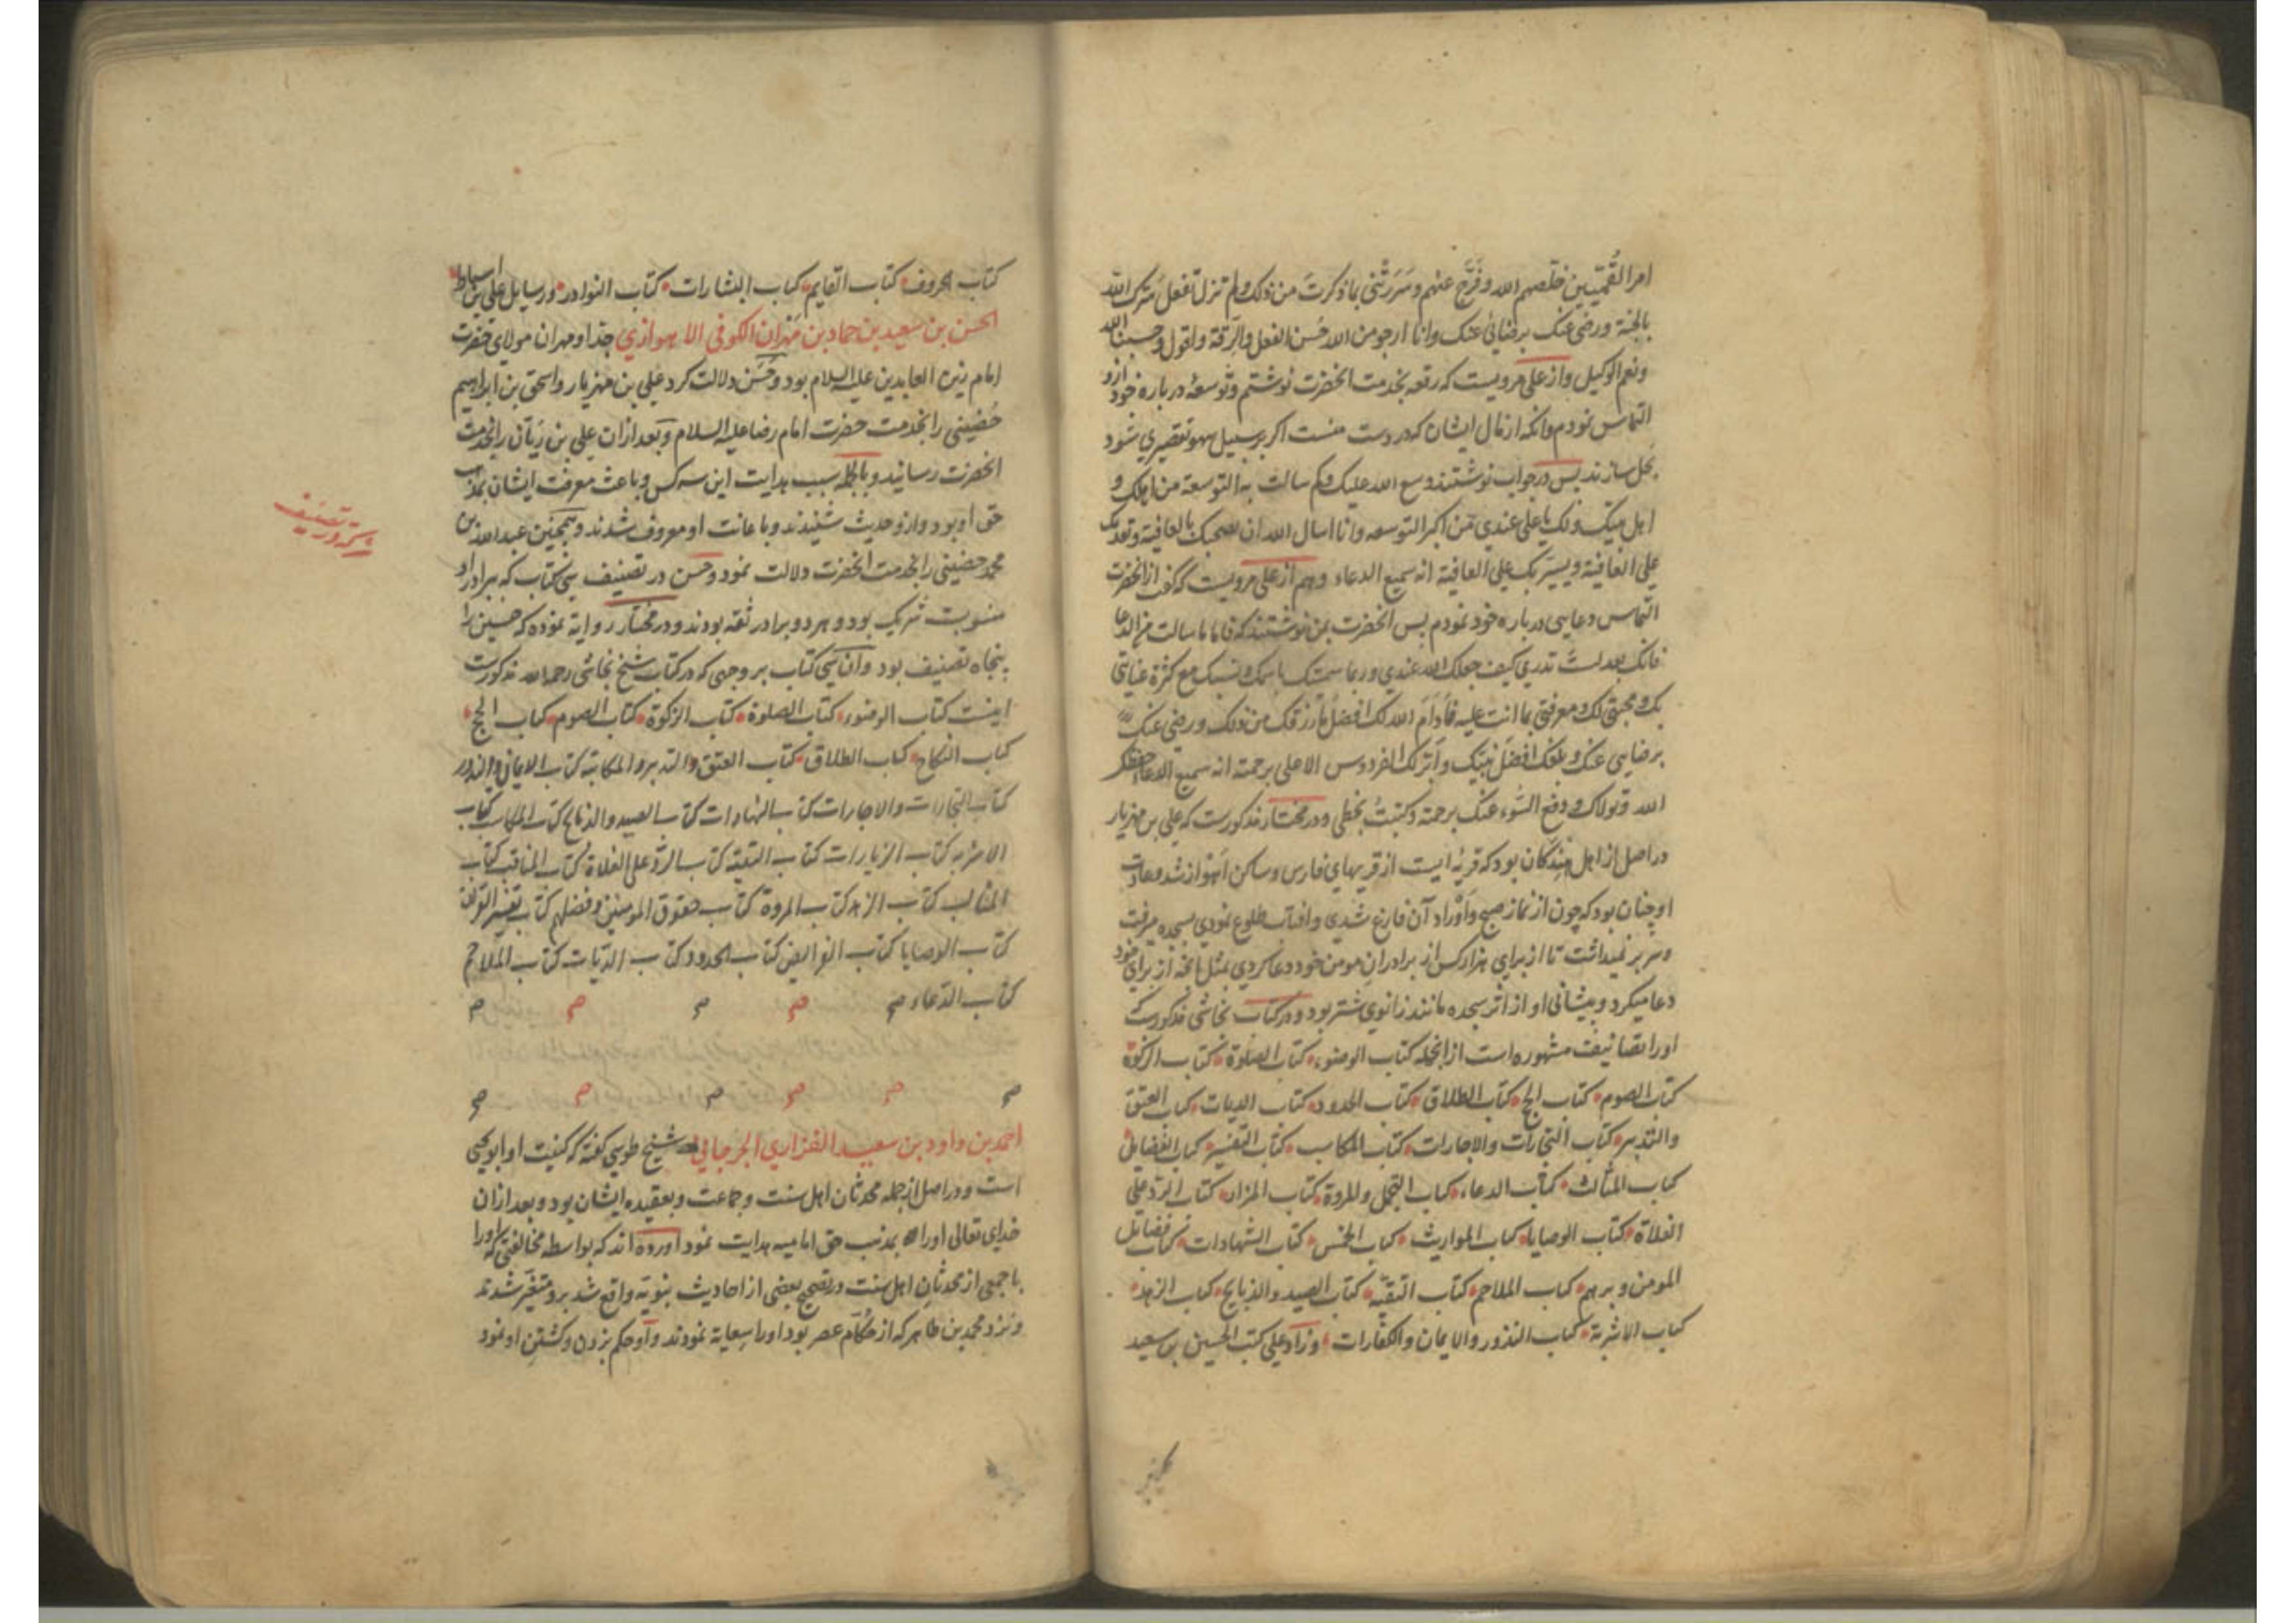 امر القُمّیین خلّصهم الله وفَرَّج عنهم وسَرَرتَنی بما ذکرتَ من ذلک ولم تزل تفعل سَرّک الله
بالجنة ورضی عنک برضائی عنک وانا ارجو من الله حُسن الفعل والرَّقة واقول وحسبنا الله
ونعم الوکیل واز علی مرویست که رقعه بخدمت انحضرت نوشتم وتوسعهٔ درباره خود ازو
التماس نمودم وانکه از مال ایشان که در دست منست اگر بر سبیل سهو تقصیری شود
بحل سازند پس در جواب نوشتند وسع الله علیک ولم سالت به التوسعة من اهلک و
اهل بیتک ولک یا علی عندی مَن اکبر التوسعه وانا اسال الله ان یصحبک بالعافیة وتعدیک
علی العافیة ویسترک علی العافیة انه سمیع الدعاء وهم از علی مرویست که گفت از انحضرت
التماس دعایی درباره خود نمودم پس انحضرت بمن نوشتند که فاما ما سالت من الدعا
فانک بعد لستَ تدری کیف جعلک الله عندی وربما سمیتک باسمک ونسبک مع کثرة عنایتی
بک ومحبتی لک ومعرفتی بما انت علیه فَاَدامَ الله لک افضل ما رزقک من ذلک ورضی عنک
برضایی عنک وبلغک افضلَ نیتک وانزلک الفردوس الاعلی برحمته انه سمیع الدعاء حفظک
الله وتولاک ودفع السّوء عنک برحمته وکتبتُ بخطی ودر مختار مذکورست که علی بن مهزیار
در اصل از اهل هندکان بود که قریهٔ ایست از قریهای فارس وساکن اهواز شد وعادت
او چنان بود که چون از نماز صبح واَوراد آن فارغ شدی وافتاب طلوع نمودی بسجده میرفت
وسر بر نمیداشت تا از برای هزار کس از برادرانِ مومن خود دعا کردی بمثل انچه از برای خود
دعا میکرد وپیشانی او از اثر سجده مانند زانوی شتر بود ودر کتاب نجاشی مذکورست
اورا تصانیف مشهوره است از انجمله کتاب الوضوء کتاب الصلوة کتاب الزکوة
کتاب الصوم کتاب الحج کتاب الطلاق کتاب الحدود کتاب الدیات کتاب العتق
والتدبیر کتاب التجارات والاجارات کتاب المکاسب کتاب التفسیر کتاب الفضایل
کتاب المثالب کتاب الدعاء کتاب التجمل والمروة کتاب المزار کتاب الرد علی
الغلاة کتاب الوصایا کتاب المواریث کتاب الخمس کتاب الشهادات کتاب فضایل
المومن وبرهم کتاب الملاحم کتاب التقیّه کتاب الصید والذبایح کتاب الزهد
کتاب الاشربة کتاب النذور والایمان والکفّارات وزاد علی کتب الحسین بن سعید
کتاب الحروف کتاب القایم کتاب البشارات کتاب النوادر ورسایل علی بن اسباط
الحسن بن سعید بن حماد بن مَهران الکوفی الاهوازی جدّ او مهران مولای حضرت
امام زین العابدین علیه السلام بود وحَسَن دلالت کرد علی بن مهزیار واسحق بن ابراهیم
حُضینی را بخدمت حضرت امام رضا علیه السلام وبعد ازان علی بن رَیّان را بخدمت
انحضرت رسانید وبالجمله سبب هدایت این سه کس وباعث معرفت ایشان بمذهب
حق او بود وازو حدیث شنیدند وباعانت او معروف شدند وهمچنین عبد الله بن
محمد حضینی را بخدمت انحضرت دلالت نمود وحسن در تصنیف سی کتاب که ببرادر او
منسوبست شریک بود وهر دو برادر ثقه بودند ودر مختار روایة نموده که حسین را
پنجاه تصنیف بود وآن سی کتاب بر وجهی که در کتاب شیخ نجاشی رحمه الله مذکورست
اینست کتاب الوضوء کتاب الصلوة کتاب الزکوة کتاب الصوم کتاب الحج
کتاب النکاح کتاب الطلاق کتاب العتق والتدبیر والمکاتبة کتاب الایمان والنذور
کتاب التجارات والاجارات کتاب الشهادات کتاب الصید والذبایح کتاب المکاسب کتاب
الاشربه کتاب الزیارات کتاب التقیّه کتاب الردّ علی الغلاة کتاب المناقب کتاب
المثالب کتاب الزهد کتاب المروة کتاب حقوق المومنین وفضلهم کتاب تفسیر القران
کتاب الوصایا کتاب الفرایض کتاب الحدود کتاب الدّیات کتاب الملاحم
کتاب الدّعاء م م م م م
م م م م م م
احمد بن داود بن سعید الفزاری الجرجانی شیخ طوسی گفته که کنیت او ابو یحیی
است ودر اصل از جمله محدثان اهل سنت وجماعت وبعقیده ایشان بود وبعد ازان
خدای تعالی اورا بمذهب حق امامیه هدایت نمود آورده اند که بواسطه مخالفتی که اورا
با جمعی از محدثانِ اهل سنت در تصحیح بعضی از احادیث نبویّه واقع شد برو متغیّر شدند
ونزد محمد بن طاهر که از حکّام عصر بود اورا سِعایة نمودند واو حکم بزدن وکشتن او نمود